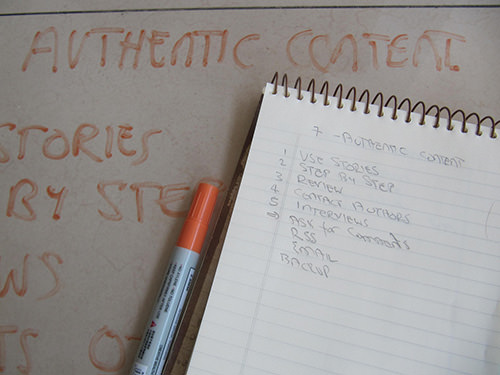 AUTHENTIC CONTENT
STORIES
BY STE
WS
TS O
7 - AUTHENTIC CONTENT
1 USE STORIES
2 STEP BY STEP
3 REVIEW
4 CONTACT AUTHORS
5 INTERVIEWS
ASK for Comments
RSS
EMAIL
BACKUP